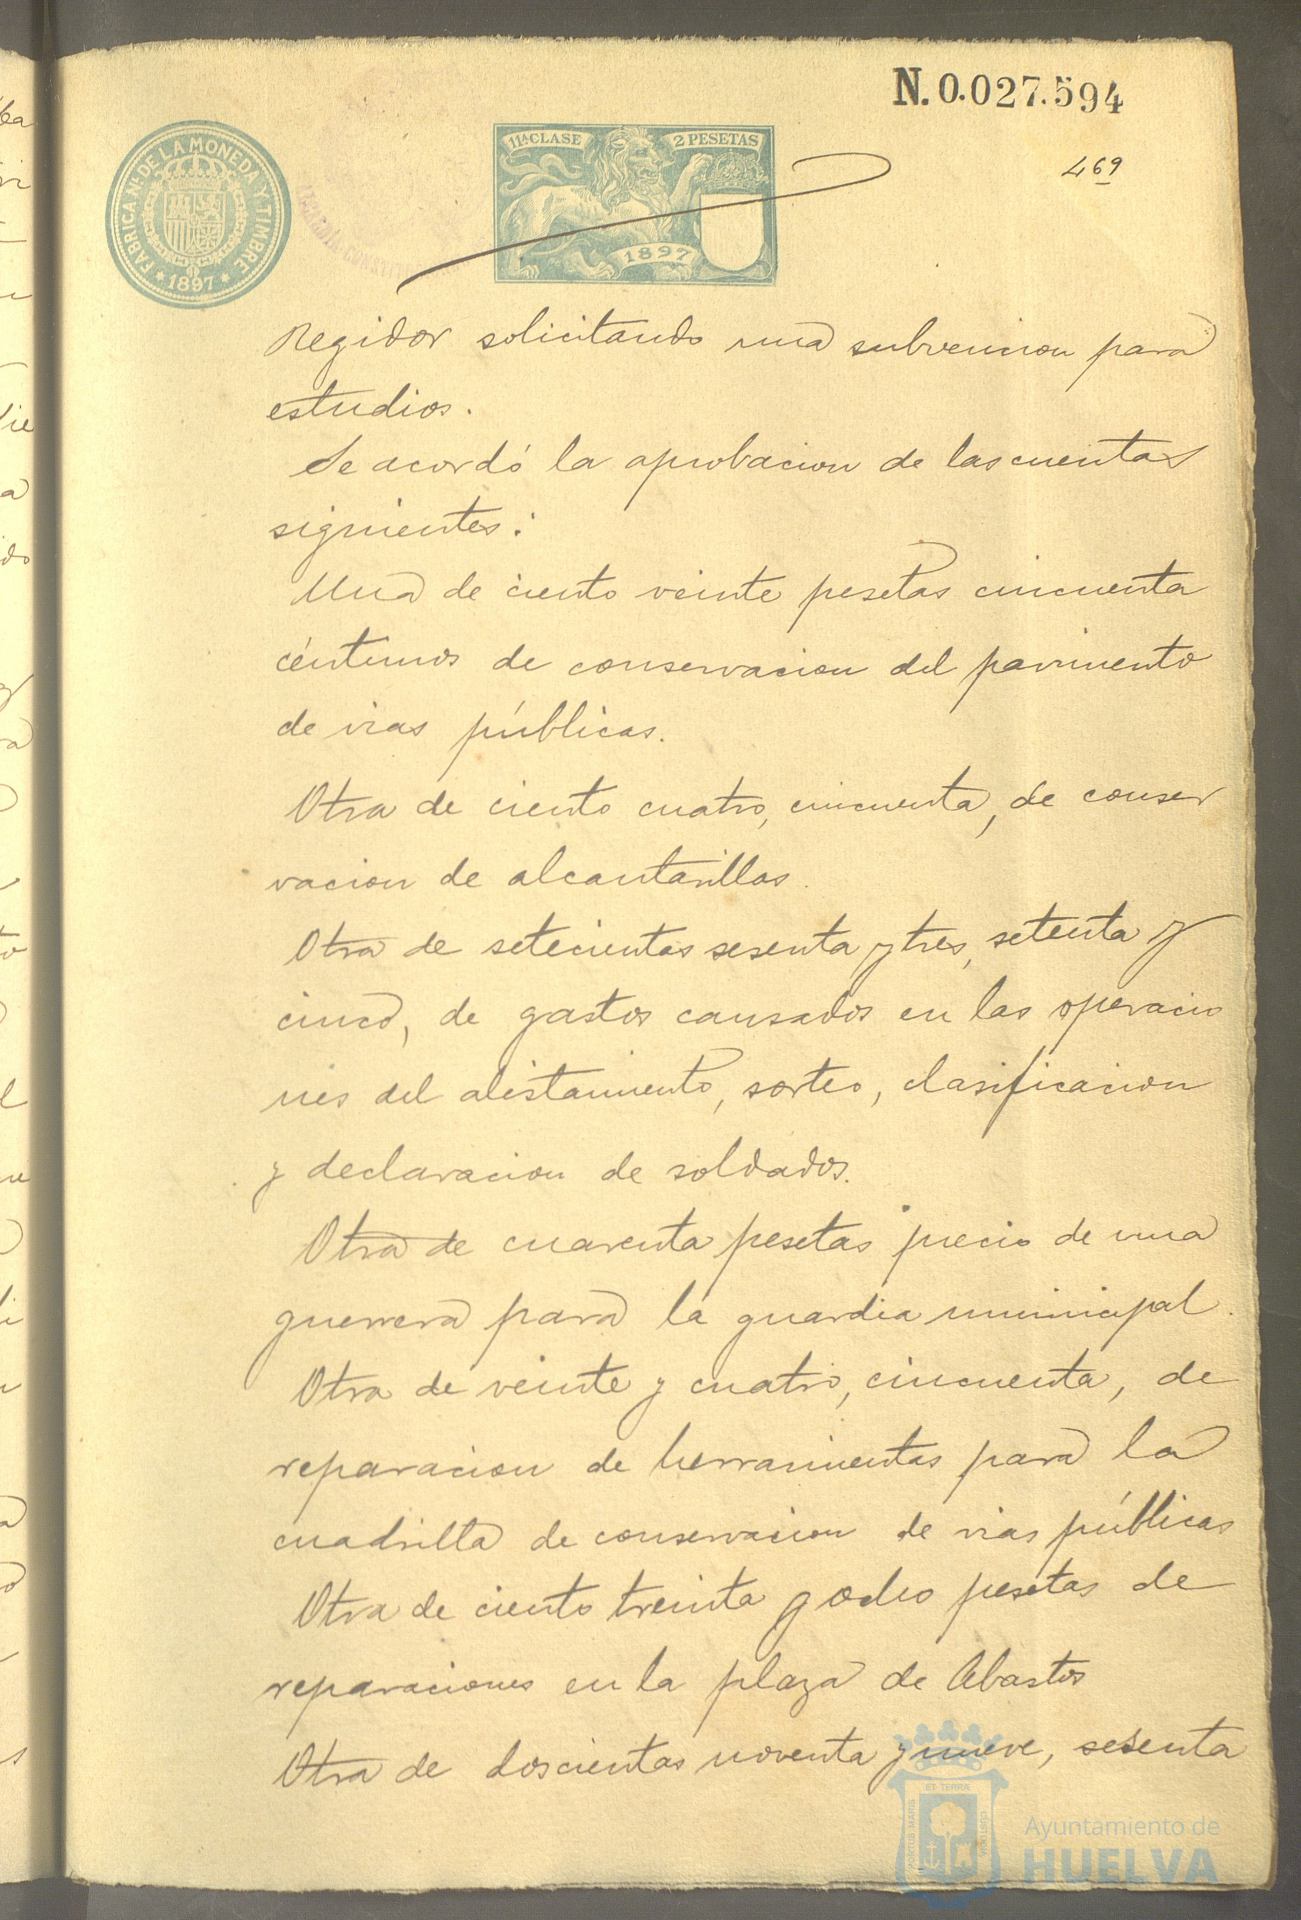 N. 0.027.594
469
FABRICA Nal DE LA MONEDA Y TIMBRE
* 1897 *
11ª CLASE
2 PESETAS
1897
Regidor solicitando una subvencion para
estudios.
Se acordó la aprobacion de las cuentas
siguientes:
Una de ciento veinte pesetas cincuenta
céntimos de conservacion del pavimento
de vias públicas.
Otra de ciento cuatro, cincuenta, de conser
vacion de alcantarillas.
Otra de setecientas sesenta y tres, setenta y
cinco, de gastos causados en las operacio
nes del alistamiento, sorteo, clasificacion
y declaracion de soldados.
Otra de cuarenta pesetas precio de una
guerrera para la guardia municipal.
Otra de veinte y cuatro, cincuenta, de
reparacion de herramientas para la
cuadrilla de conservacion de vias públicas
Otra de ciento treinta y ocho pesetas de
reparaciones en la plaza de Abastos
Otra de doscientas noventa y nueve, sesenta
PORTUS MARIS
ET TERRÆ
CUSTODIA
Ayuntamiento de
HUELVA